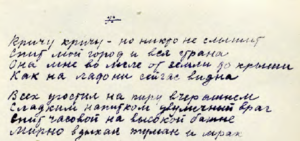 Кричу кричу - но никто не слышит
Спит мой город и вся страна
Она мне во мгле от земли до крыши
Как на ладони сейчас видна
Всех угостил на пиру вчерашнем
Сладким напитком двуличный враг
Спит часовой на высокой башне
Мирно вдыхая туман и мрак